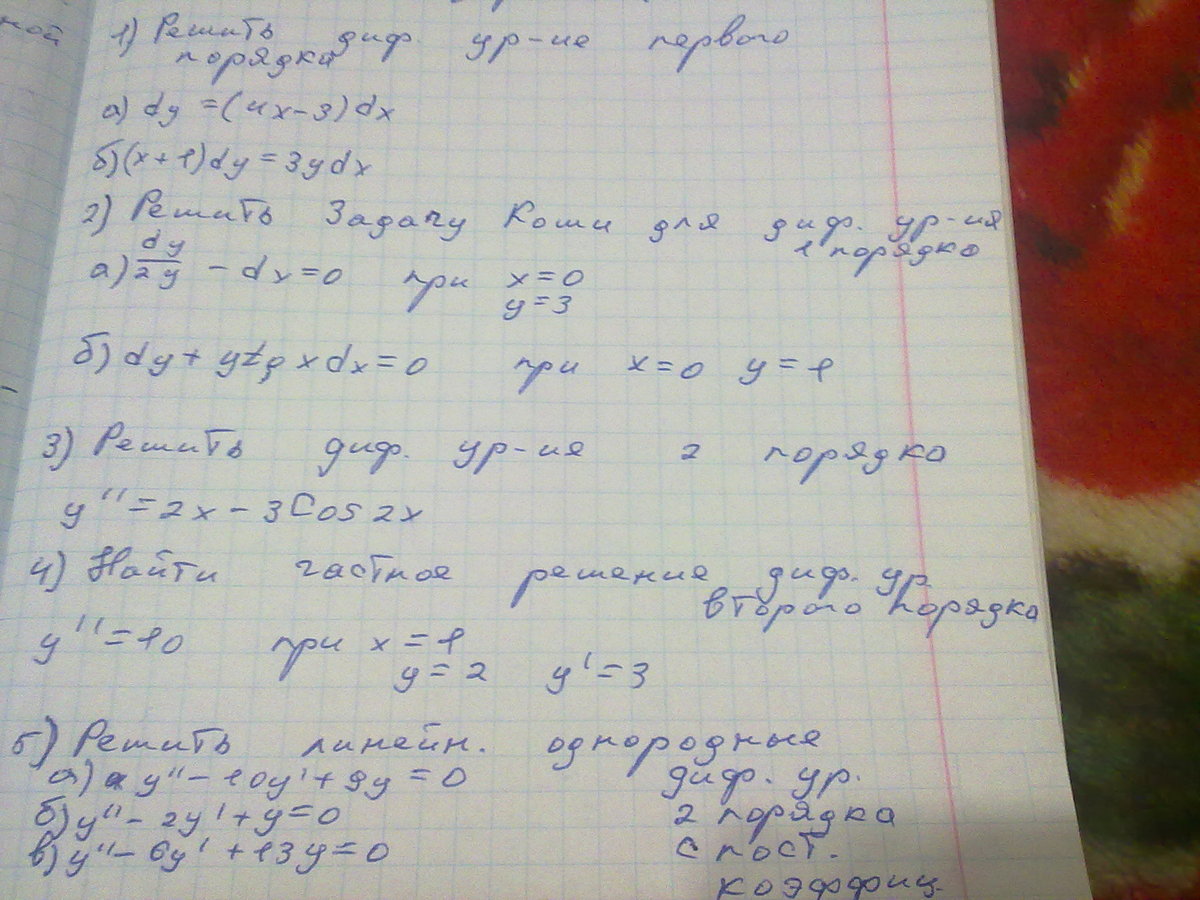 ной
1) Решить диф. ур-ие первого
порядка
а) dy = (4x-3)dx
б) (x+1)dy = 3ydx
2) Решить Задачу Коши для диф. ур-ия
1 порядка
а) dy/2y - dx = 0 при x = 0
y = 3
б) dy + ytg x dx = 0 при x = 0 y = 1
3) Решить диф. ур-ия 2 порядка
y'' = 2x - 3Cos2x
4) Найти частное решение диф. ур.
второго порядка
y'' = 10 при x = 1
y = 2 y' = 3
5) Решить линейн. однородные
диф. ур.
2 порядка
с пост.
коэффиц.
а) y'' - 10y' + 9y = 0
б) y'' - 2y' + y = 0
в) y'' - 6y' + 13y = 0